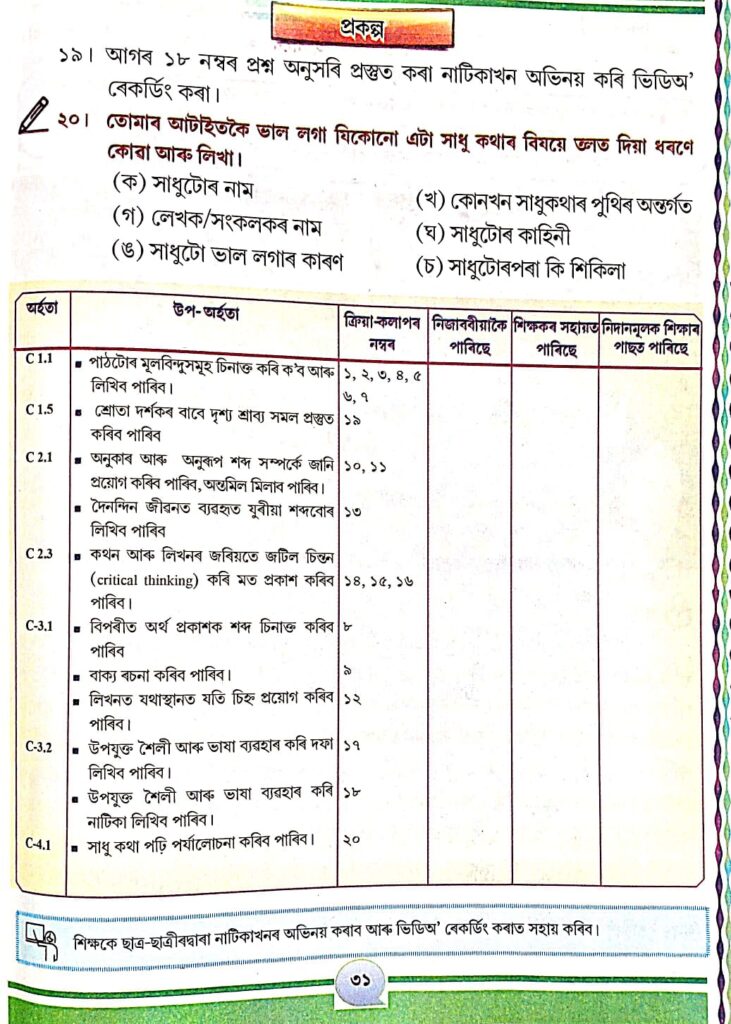 প্ৰকল্প
১৯। আগৰ ১৮ নম্বৰ প্ৰশ্ন অনুসৰি প্ৰস্তুত কৰা নাটিকাখন অভিনয় কৰি ভিডিঅ'
ৰেকৰ্ডিং কৰা।
২০। তোমাৰ আটাইতকৈ ভাল লগা যিকোনো এটা সাধু কথাৰ বিষয়ে তলত দিয়া ধৰণে
কোৱা আৰু লিখা।
(ক) সাধুটোৰ নাম
(খ) কোনখন সাধুকথাৰ পুথিৰ অন্তৰ্গত
(গ) লেখক/সংকলকৰ নাম
(ঘ) সাধুটোৰ কাহিনী
(ঙ) সাধুটো ভাল লগাৰ কাৰণ
(চ) সাধুটোৰপৰা কি শিকিলা
অৰ্হতা উপ-অৰ্হতা ক্ৰিয়া-কলাপৰ নিজাববীয়াকৈ শিক্ষকৰ সহায়ত নিদানমূলক শিক্ষাৰ
নম্বৰ পাৰিছে পাৰিছে পাছত পাৰিছে
C 1.1 ▪ পাঠটোৰ মূলবিন্দুসমূহ চিনাক্ত কৰি ক'ব আৰু ১, ২, ৩, ৪, ৫
লিখিব পাৰিব। ৬, ৭
C 1.5 ▪ শ্ৰোতা দৰ্শকৰ বাবে দৃশ্য শ্ৰাব্য সমল প্ৰস্তুত ১৯
কৰিব পাৰিব
C 2.1 ▪ অনুকাৰ আৰু অনুৰূপ শব্দ সম্পৰ্কে জানি ১০, ১১
প্ৰয়োগ কৰিব পাৰিব, অন্তমিল মিলাব পাৰিব।
▪ দৈনন্দিন জীৱনত ব্যৱহৃত যুৰীয়া শব্দবোৰ ১৩
লিখিব পাৰিব
C 2.3 ▪ কথন আৰু লিখনৰ জৰিয়তে জটিল চিন্তন
(critical thinking) কৰি মত প্ৰকাশ কৰিব ১৪, ১৫, ১৬
পাৰিব।
C-3.1 ▪ বিপৰীত অৰ্থ প্ৰকাশক শব্দ চিনাক্ত কৰিব ৮
পাৰিব
▪ বাক্য ৰচনা কৰিব পাৰিব। ৯
▪ লিখনত যথাস্থানত যতি চিহ্ন প্ৰয়োগ কৰিব ১২
পাৰিব।
C-3.2 ▪ উপযুক্ত শৈলী আৰু ভাষা ব্যৱহাৰ কৰি দফা ১৭
লিখিব পাৰিব।
▪ উপযুক্ত শৈলী আৰু ভাষা ব্যৱহাৰ কৰি ১৮
নাটিকা লিখিব পাৰিব।
C-4.1 ▪ সাধু কথা পঢ়ি পৰ্যালোচনা কৰিব পাৰিব। ২০
শিক্ষকে ছাত্ৰ-ছাত্ৰীৰদ্বাৰা নাটিকাখনৰ অভিনয় কৰাব আৰু ভিডিঅ' ৰেকৰ্ডিং কৰাত সহায় কৰিব।
৩১